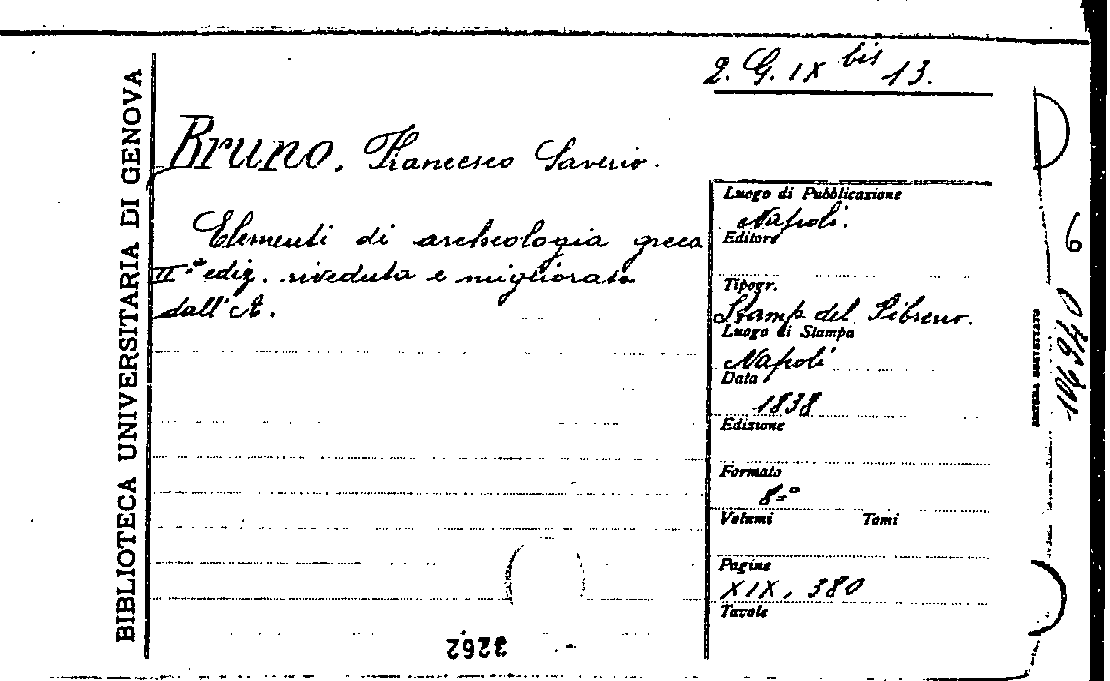 BIBLIOTECA UNIVERSITARIA DI GENOVA
2. G. IX bis 13.
Bruno, Francesco Saverio.
Elementi di archeologia greca
II.ª ediz. riveduta e migliorata
dall'A.
Luogo di Pubblicazione
Napoli.
Editore
Tipogr.
Stamp. del Fibreno.
Luogo di Stampa
Napoli
Data
1838
Edizione
Formato
8.º
Volumi Tomi
Pagine
XIX, 380
Tavole
3262
6